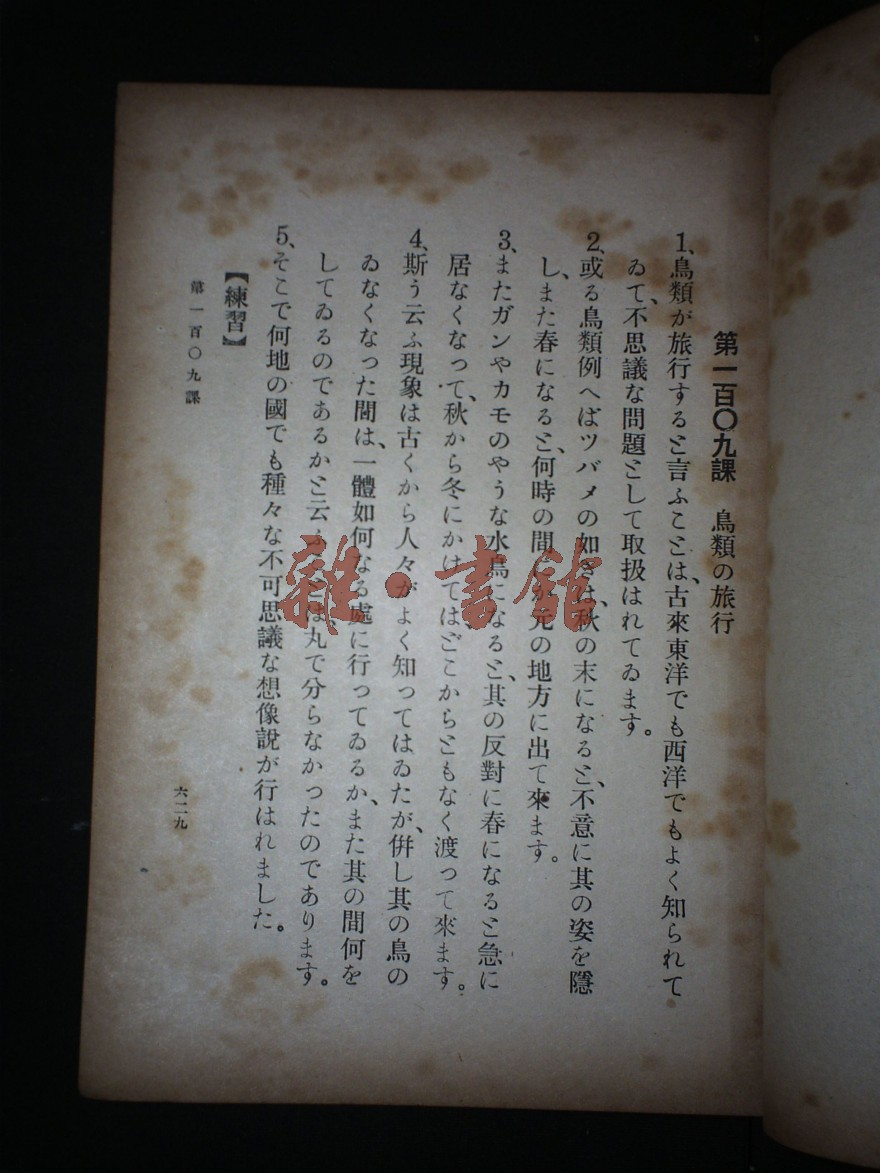 第一百〇九課　鳥類の旅行
1、鳥類が旅行すると言ふことは、古來東洋でも西洋でもよく知られて
ゐて、不思議な問題として取扱はれてゐます。
2、或る鳥類例へばツバメの如きは、秋の末になると、不意に其の姿を隱
し、また春になると、何時の間にか元の地方に出て來ます。
3、またガンやカモのやうな水鳥になると、其の反對に春になると急に
居なくなって、秋から冬にかけては、どこからともなく渡って來ます。
4、斯う云ふ現象は古くから人々がよく知ってはゐたが、併し其の鳥の
ゐなくなった間は、一體如何なる處に行ってゐるか、また其の間何を
してゐるのであるかと云ふ は、丸で分らなかったのであります。
5、そこで何地の國でも種々な不可思議な想像說が行はれました。
【練習】
第一百〇九課
六二九
雜·書館